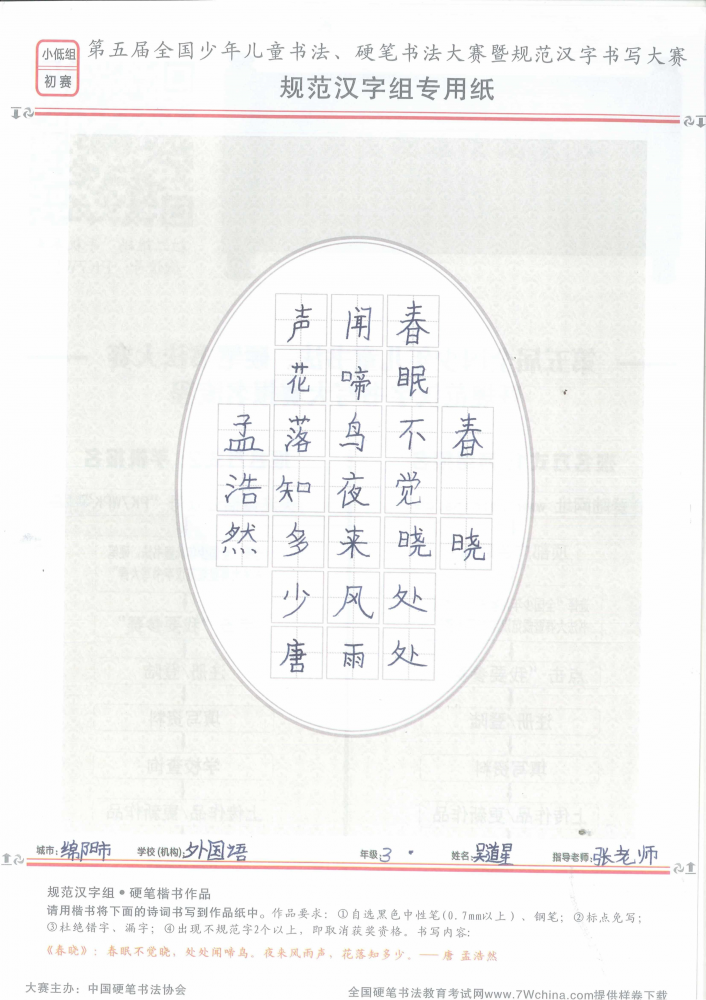 小低组
初赛
第五届全国少年儿童书法、硬笔书法大赛暨规范汉字书写大赛
规范汉字组专用纸
春晓
春眠不觉晓处处
闻啼鸟夜来风雨
声花落知多少唐
孟浩然
城市：绵阳市 学校(机构)：外国语 年级：3 姓名：吴道星 指导老师：张老师
规范汉字组•硬笔楷书作品
请用楷书将下面的诗词书写到作品纸中。作品要求：①自选黑色中性笔(0.7mm以上)、钢笔；②标点免写；
③杜绝错字、漏字；④出现不规范字2个以上，即取消获奖资格。书写内容：
《春晓》：春眠不觉晓，处处闻啼鸟。夜来风雨声，花落知多少。——唐 孟浩然
大赛主办：中国硬笔书法协会 全国硬笔书法教育考试网www.7Wchina.com提供样卷下载